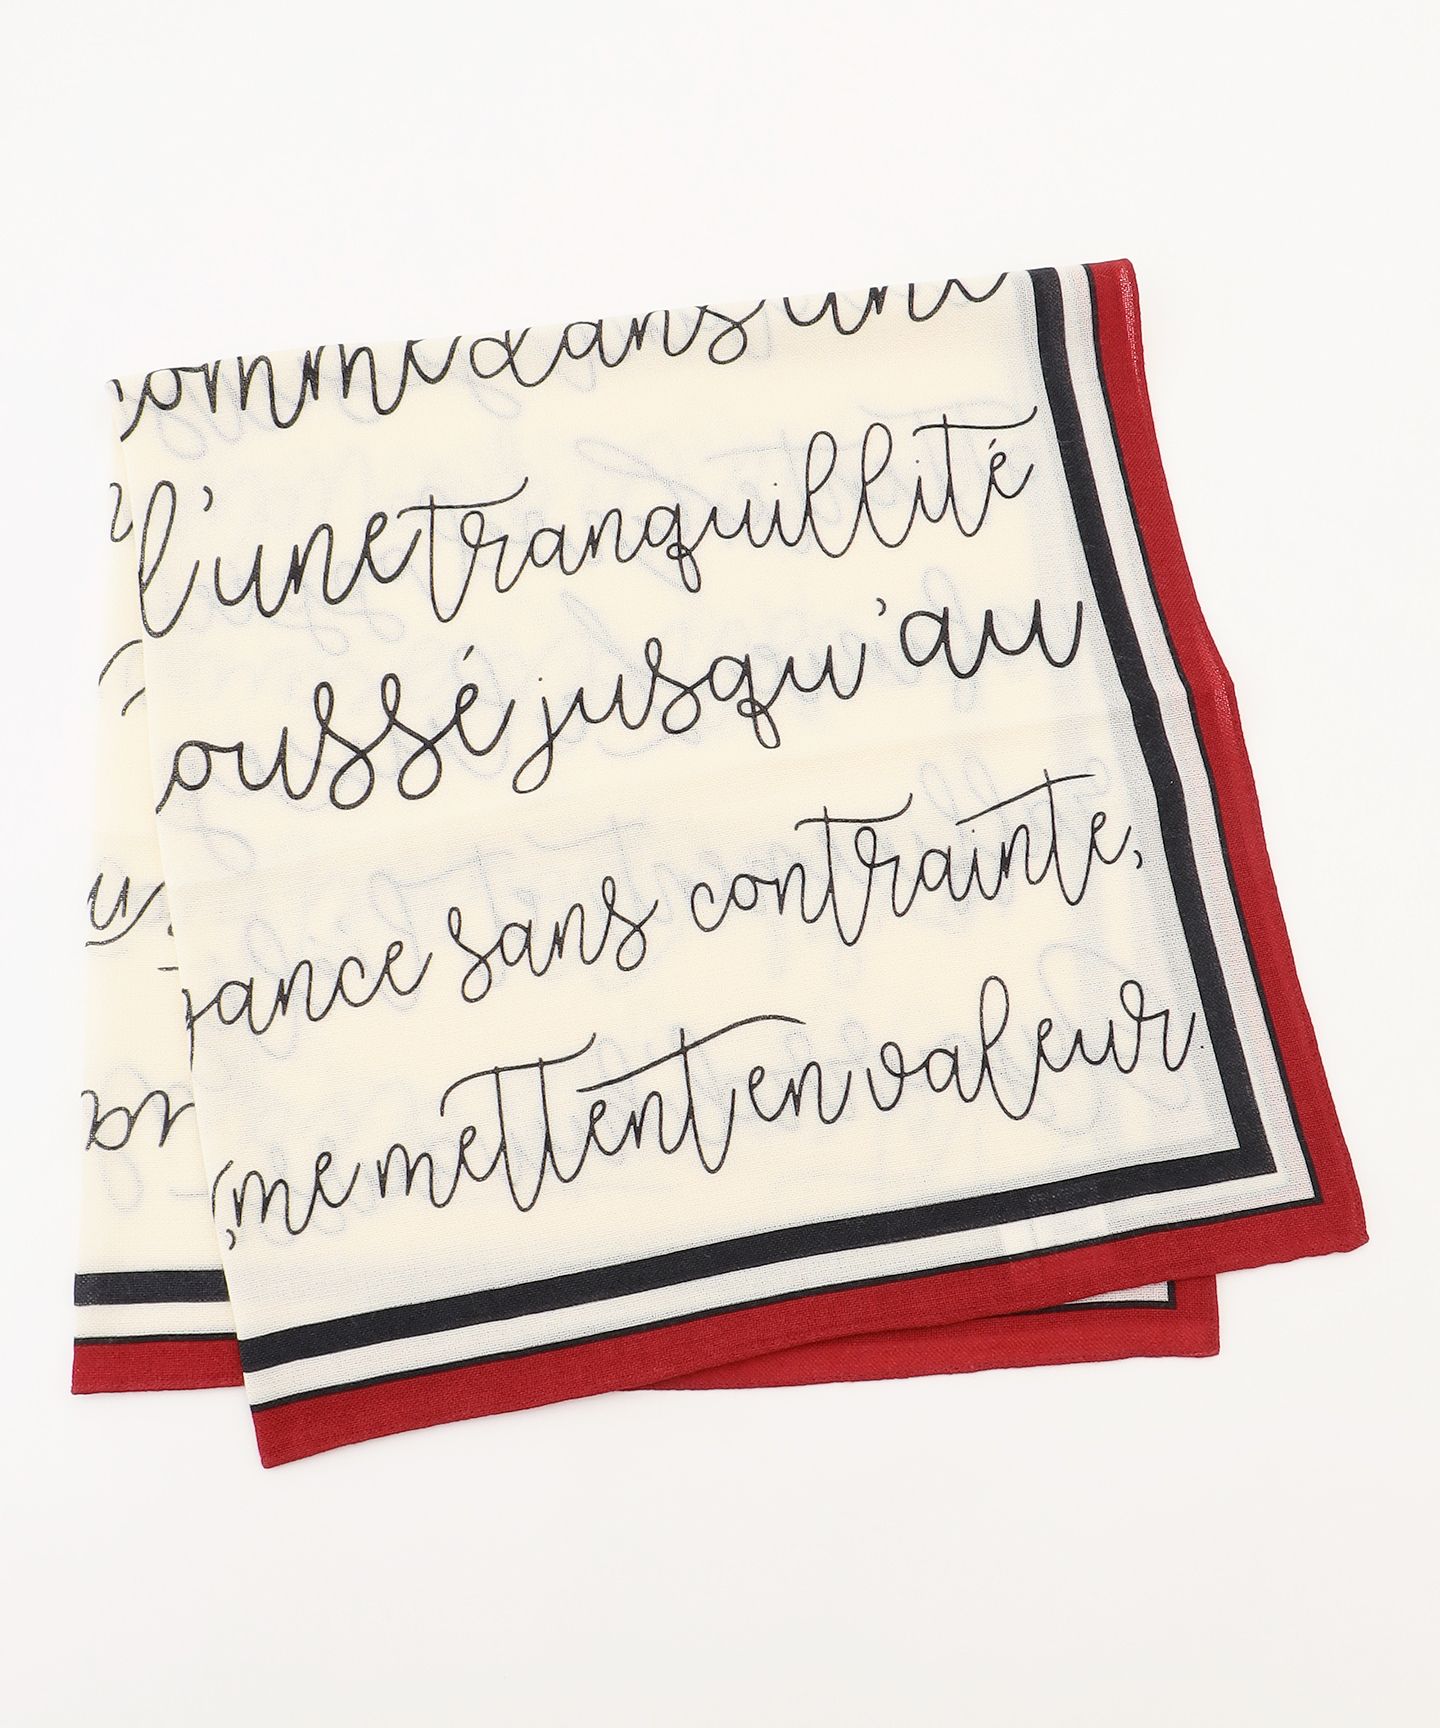 comme dans une
l'une tranquillité
oussé jusqu'au
gance sans contrainte,
me mettent en valeur.